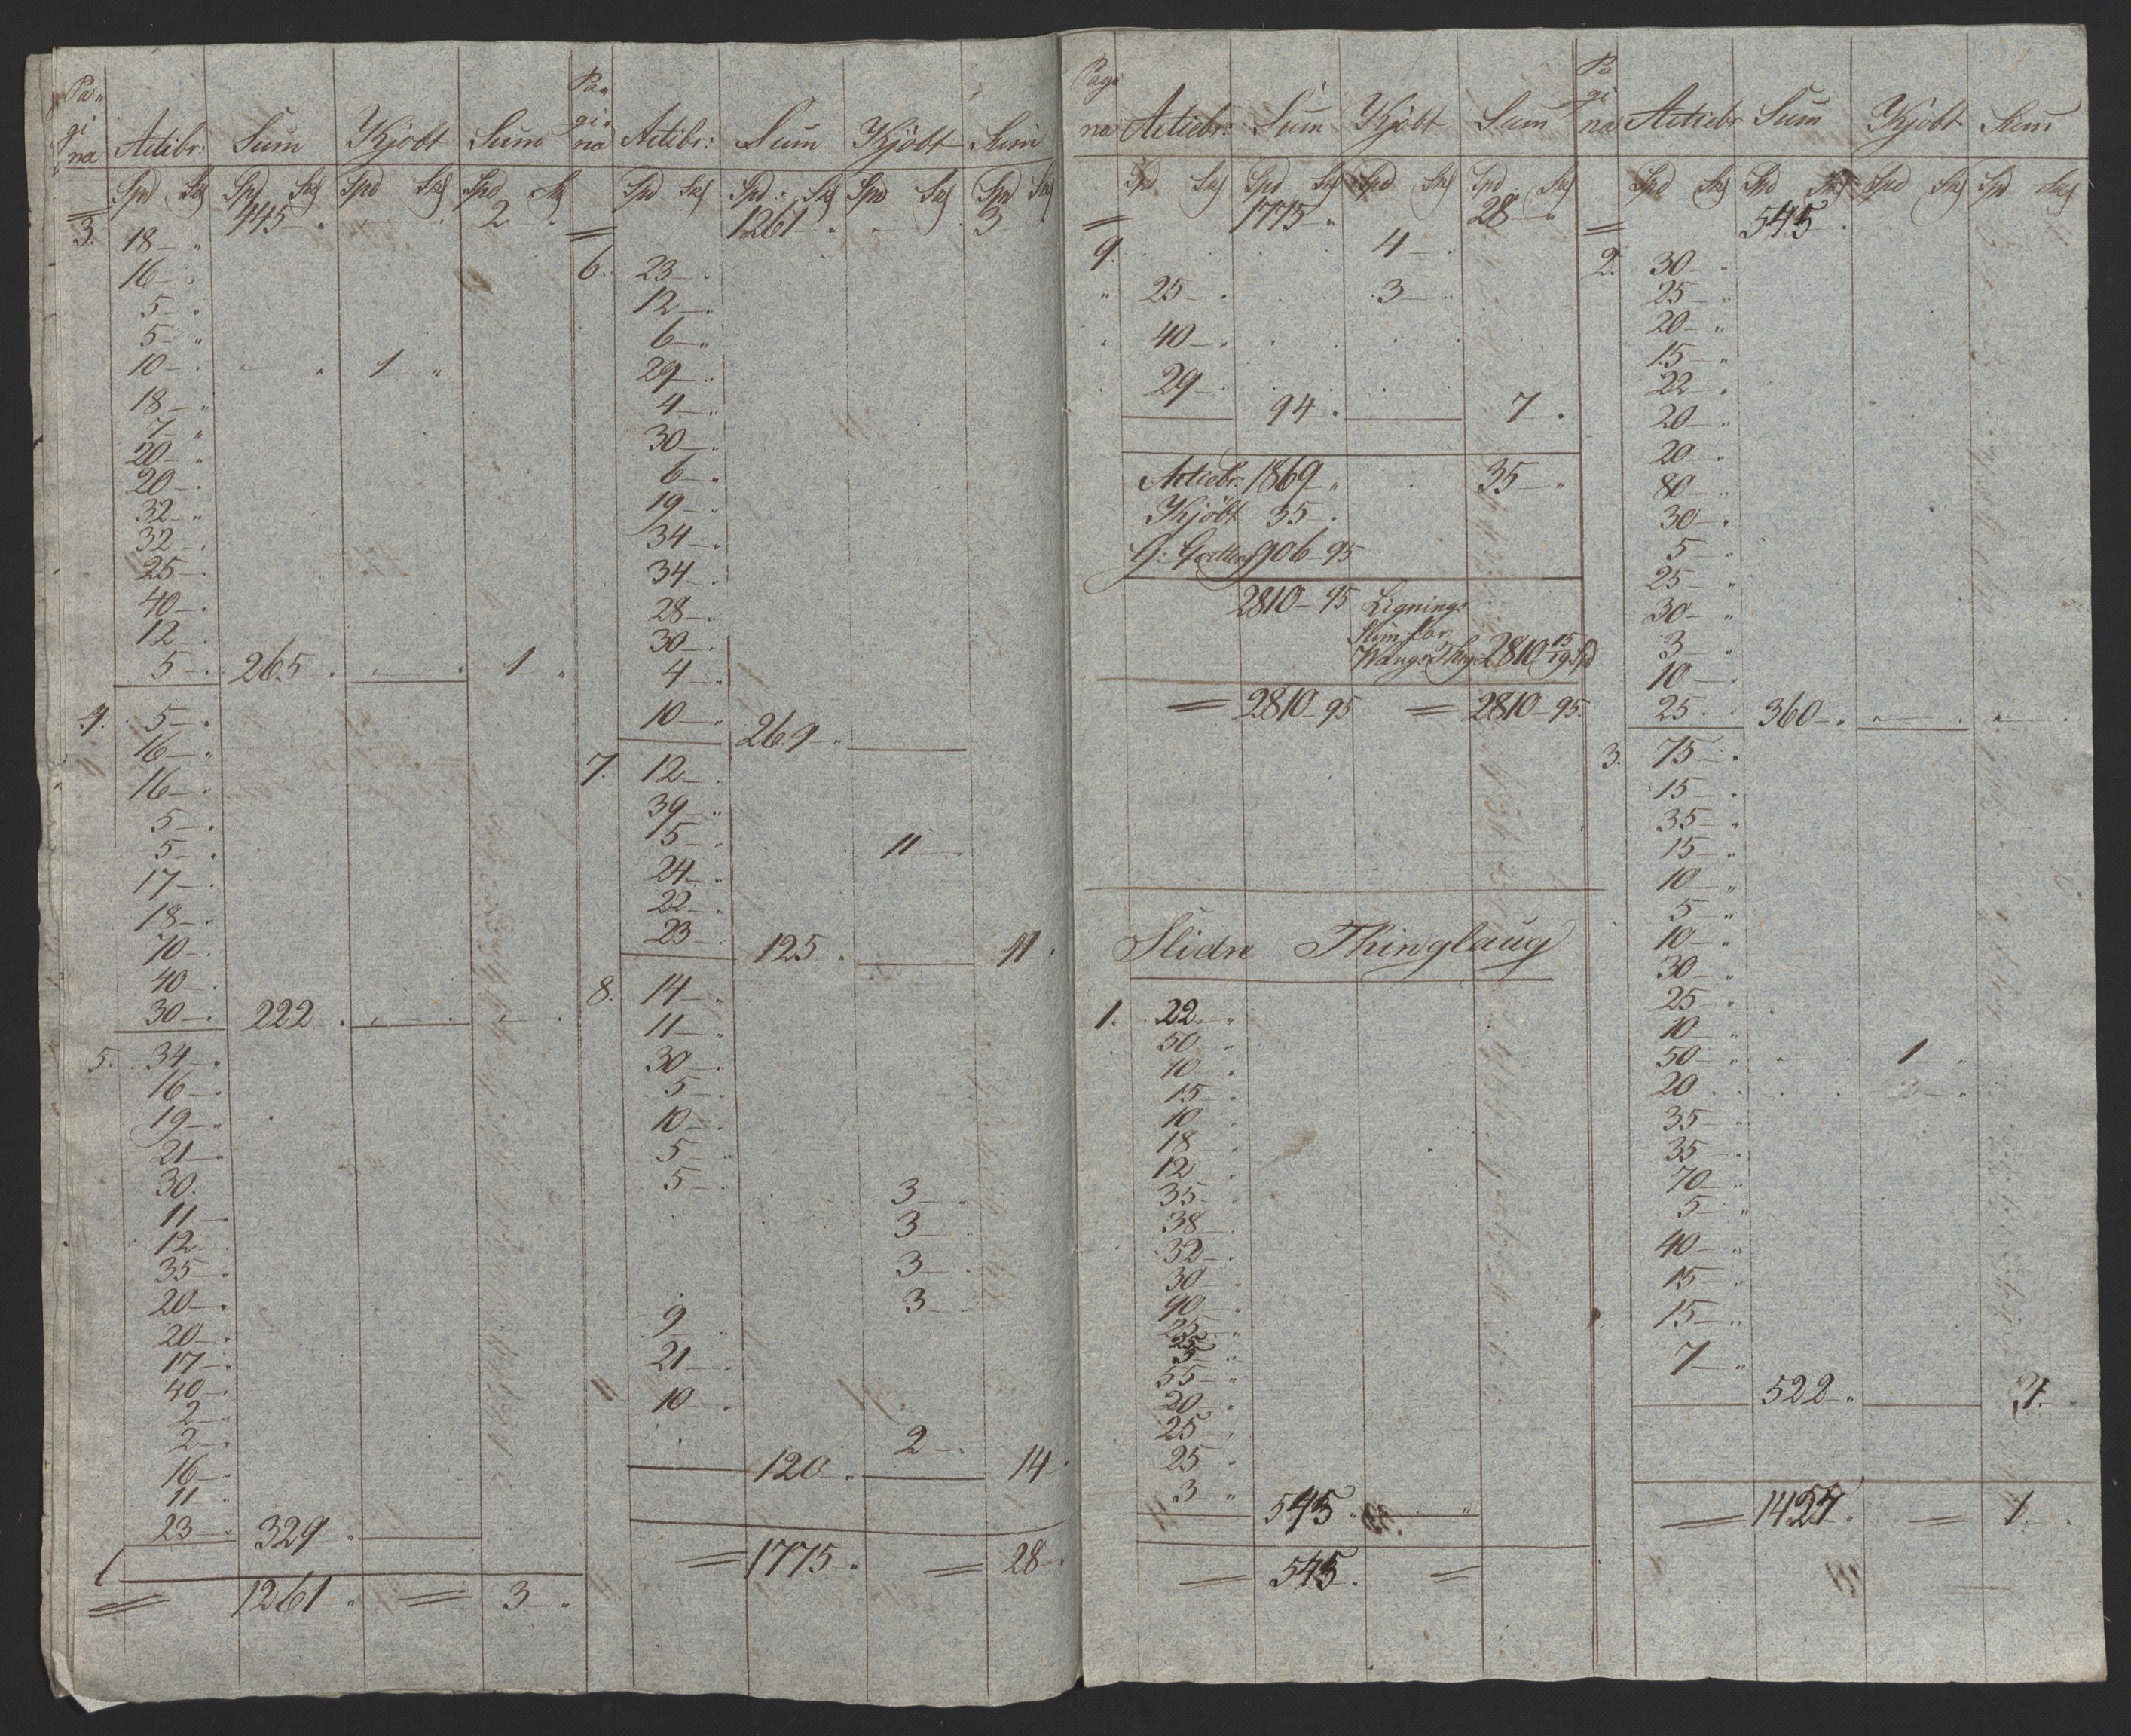 Pa-
gi
na Actibr: Sum Kjöbt Sum
Spd Sk Spd Sk Spd Sk Spd Sk
445 - " 2
3. 18 - "
16 - "
5 - "
5 - "
10 - " 1 "
18 - "
7 - "
20 - "
20 - "
32 - "
32 - "
25 - "
40 - "
12 - "
5 - " 265 " 1 - "
4. 5 - "
16 - "
16 - "
5 - "
5 - "
17 - "
18 - "
70 - "
40 - "
30 - " 222 "
5. 34 - "
16 - "
19 - "
21 - "
30.
11 -
12 -
35 - "
20 - "
20 - "
17 - "
40 - "
2 - "
2 - "
16 -
11 "
23 - " 329 - "
= 1261 - " = 3 - "
Pa-
gi-
na Actibr: Sum Kjöbt Sum
Spd Sk Spd: Sk Spd Sk Spd Sk
= 1261 - " 3 -
6. 23 - "
12 - "
6 - "
29 - "
4 - "
30 - "
6 - "
19 - "
34 - "
34 - "
28 - "
30 - "
4 - "
10 - " 269 - "
7. 12 - "
39 - "
5 - " 11 -
24 - "
22 - "
23 - " 125 " 11 "
8. 14 - "
11 - "
30 - "
5 - "
10 - "
5 - "
5 - " 3 - "
3 -
3 - "
3 -
9 - "
21 - "
10 - "
2 - "
120 " 14 "
= 1775 - " = 28 - "
Pagi
na Actiebr: Sum Kjöbt Sum
Spd Sk Spd Sk Spd Sk Spd Sk
= 1775 - " 28 - "
9. 4 - "
" 25 - " 3 - "
40 - "
29 - "
94 " 7 "
Actiebr. 1869 " 35 - "
Kjöbt 35 - "
906 - 95
2810 - 95 Lignings
2810
= 2810 - 95 = 2810 - 95
Slidre Thinglaug
1. 22 - "
50 "
10 "
15 "
10 "
18 "
12 "
35 "
38 "
32 - "
30 "
90 - "
25 "
55 - "
20 - "
25 "
25 "
3 " 545 "
= 545 " =
Pa
gi
na Actiebr Sum Kjöbt Sum
Spd Sk Spd Sk Spd Sk Spd Sk
= 545 "
2. 30 - "
25 - "
20 - "
15 - "
22 - "
20 - "
20 - "
80 - "
30 - "
5 - "
25 - "
30 - "
3 - "
10 - "
25 " 360 - "
3. 75 - "
15 - "
35 - "
15 - "
10 - "
5 "
10 - "
30 - "
25 - "
10 - "
50 - " 1 - "
20
35 - "
35 - "
70 - "
5 - "
40 - "
15 - "
15 - "
7 - "
522 - " 1 - "
= 1427 " = 1 "